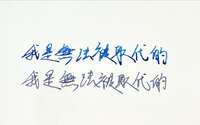 我是無法被取代的
我是無法被取代的